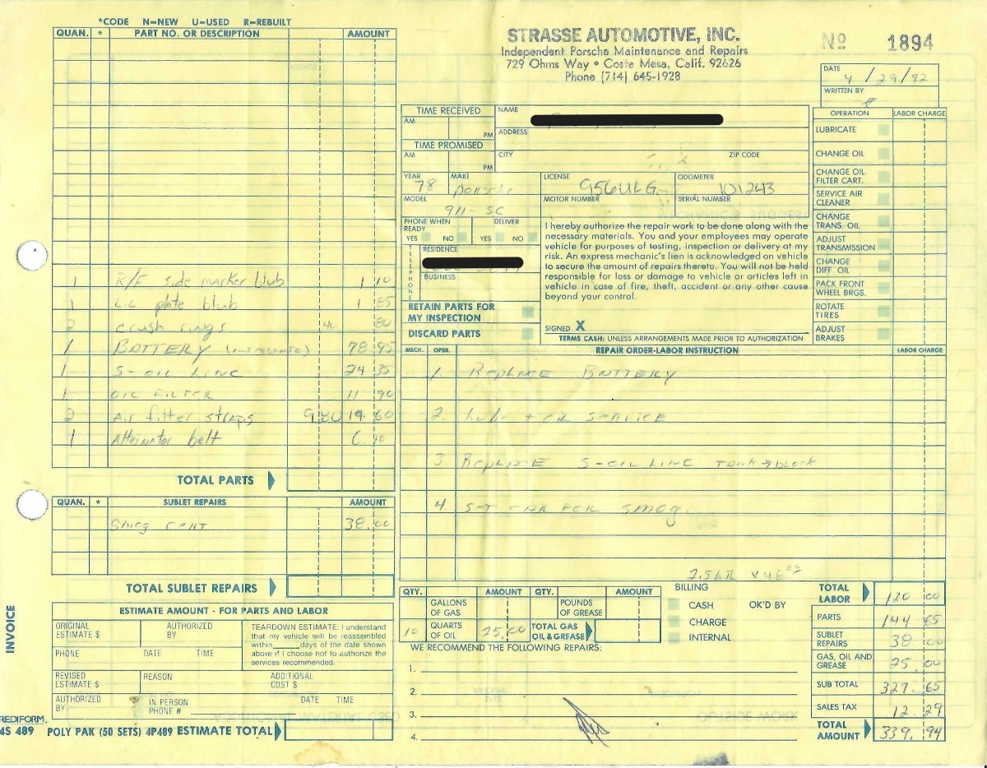 *CODE N=NEW U=USED R=REBUILT
QUAN. * PART NO. OR DESCRIPTION AMOUNT
1 R/F side marker blub 1 10
1 Lic plate blub 1 85
2 crush rings 40 80
1 BATTERY 78 95
1 S-OIL LINE 24 35
1 OIL FILTER 11 90
2 Air filter straps 9.80 19 60
1 Alternator belt 6 10
TOTAL PARTS
QUAN. * SUBLET REPAIRS AMOUNT
Smog cert 38.00
TOTAL SUBLET REPAIRS
ESTIMATE AMOUNT - FOR PARTS AND LABOR
ORIGINAL ESTIMATE $ AUTHORIZED BY
PHONE DATE TIME
TEARDOWN ESTIMATE: I understand
that my vehicle will be reassembled
within____days of the date shown
above if I choose not to authorize the
services recommended.
REVISED ESTIMATE $ REASON ADDITIONAL COST $
AUTHORIZED BY IN PERSON PHONE # DATE TIME
INVOICE
REDIFORM
4S 489 POLY PAK (50 SETS) 4P489 ESTIMATE TOTAL
STRASSE AUTOMOTIVE, INC.
Independent Porsche Maintenance and Repairs
729 Ohms Way • Costa Mesa, Calif. 92626
Phone (714) 645-1928
No 1894
DATE 4/29/92
WRITTEN BY
TIME RECEIVED AM PM
TIME PROMISED AM PM
NAME
ADDRESS
CITY ZIP CODE
YEAR 78 MAKE Porsche LICENSE 956ULG ODOMETER 101243
MODEL 911-SC MOTOR NUMBER SERIAL NUMBER
PHONE WHEN READY YES NO DELIVER YES NO
TELEPHONE RESIDENCE
BUSINESS
RETAIN PARTS FOR MY INSPECTION
DISCARD PARTS
I hereby authorize the repair work to be done along with the
necessary materials. You and your employees may operate
vehicle for purposes of testing, inspection or delivery at my
risk. An express mechanic's lien is acknowledged on vehicle
to secure the amount of repairs thereto. You will not be held
responsible for loss or damage to vehicle or articles left in
vehicle in case of fire, theft, accident or any other cause
beyond your control.
SIGNED X
TERMS CASH: UNLESS ARRANGEMENTS MADE PRIOR TO AUTHORIZATION
OPERATION LABOR CHARGE
LUBRICATE
CHANGE OIL
CHANGE OIL FILTER CART.
SERVICE AIR CLEANER
CHANGE TRANS. OIL
ADJUST TRANSMISSION
CHANGE DIFF. OIL
PACK FRONT WHEEL BRGS.
ROTATE TIRES
ADJUST BRAKES
MECH. OPER. REPAIR ORDER-LABOR INSTRUCTION LABOR CHARGE
1. Replace BATTERY
2 Lube + oil SERVICE
3. Replace S-OIL LINE TANK → block
4. SET CAR FOR SMOG.
QTY. AMOUNT QTY. AMOUNT
GALLONS OF GAS POUNDS OF GREASE
10 QUARTS OF OIL 25.00 TOTAL GAS OIL & GREASE
BILLING
CASH OK'D BY
CHARGE
INTERNAL
WE RECOMMEND THE FOLLOWING REPAIRS:
1.
2.
3.
4.
TOTAL LABOR 120 00
PARTS 144 65
SUBLET REPAIRS 38 00
GAS, OIL AND GREASE 25.00
SUB TOTAL 327.65
SALES TAX 12 29
TOTAL AMOUNT 339.94